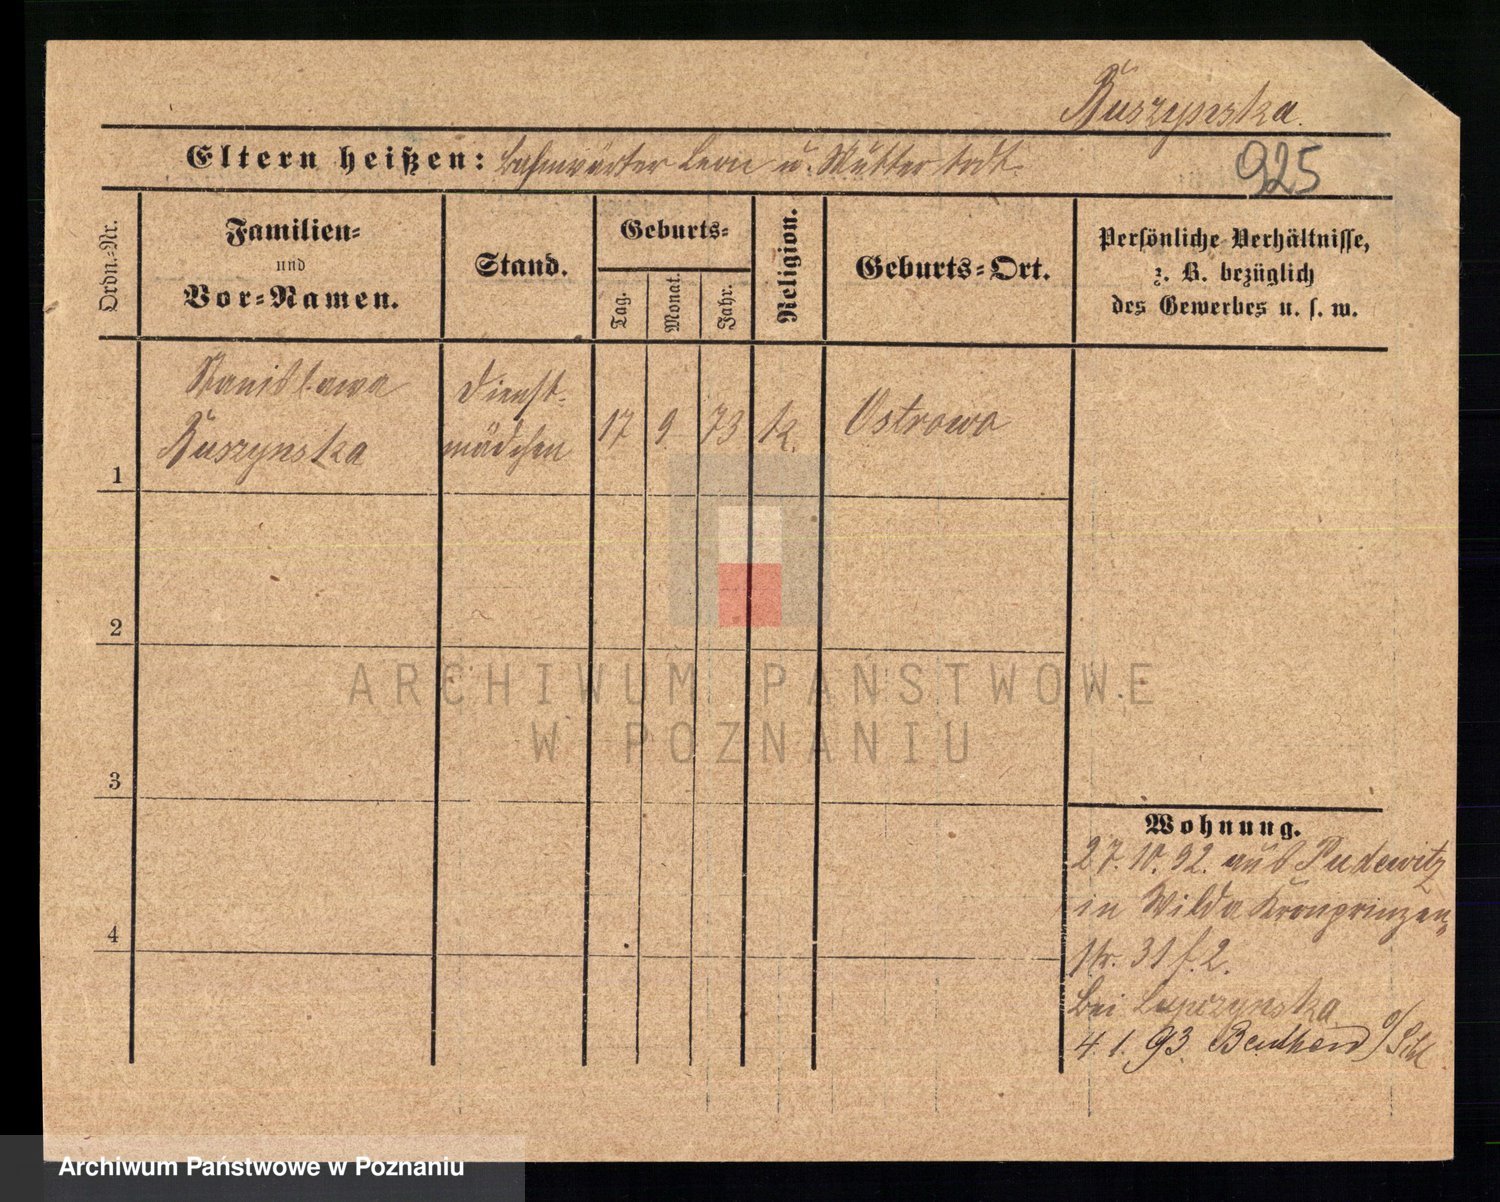 Buszynska.
Eltern heißen: Bahnwärter Leon u. Mutter todt.
925
Ordn.-Nr.
Familien-
und
Vor-Namen.
Stand.
Geburts-
Tag.
Monat.
Jahr.
Religion.
Geburts-Ort.
Persönliche Verhältnisse,
z. B. bezüglich
des Gewerbes u. s. w.
1
Stanislawa
Buszynska
Dienst-
mädchen
17
9
73
k.
Ostrowo
2
3
4
Wohnung.
27.10.92. aus Pudewitz
in Wilda Kronprinzen
str. 31 f. 2.
bei
4.1.93. Beuthen o/Schl
ARCHIWUM PAŃSTWOWE
W POZNANIU
Archiwum Państwowe w Poznaniu